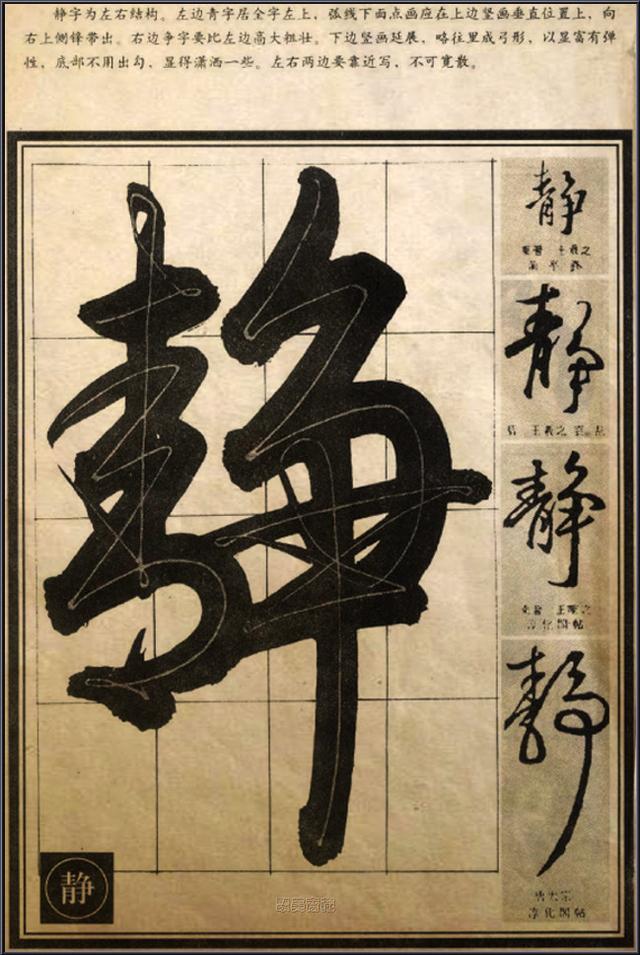 静字为左右结构。左边青字居全字左上，弧线下面点画应在上边竖画垂直位置上，向
右上侧锋带出。右边争字要比左边高大粗壮。下边竖画延展，略往里成弓形，以显富有弹
性，底部不用出勾，显得潇洒一些。左右两边要靠近写，不可宽散。
静
静
静
王羲之
静
王羲之
静
淳化阁帖
静
唐太宗
淳化阁帖
静